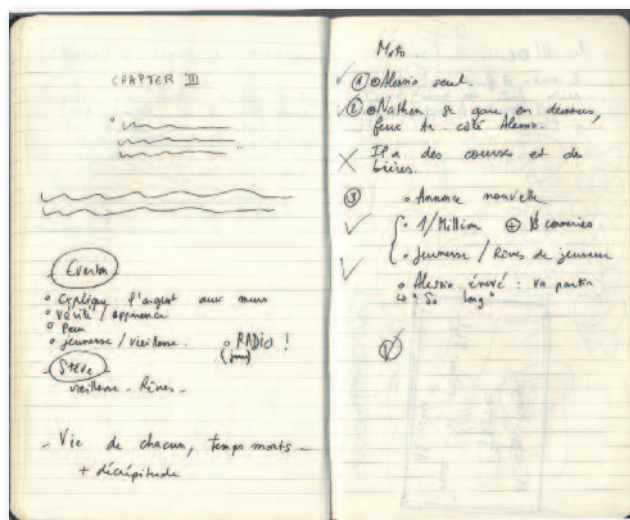 CHAPTER III
Everton
Explique l'argent aux murs
Vérité / apparence
Peur
jeunesse / vieillesse.
RADIO !
Steve
vieillesse - Rêves -
- Vie de chacun, temps morts -
+ décrépitude
Moto.
① Alessio seul.
② Nathan se gare en dessous,
côté Alessio.
Il a des courses et de
bières.
③ Annonce nouvelle
1/Million ⊕ conneries
Jeunesse / Rêves de jeunesse
Alessio énervé : va partir
↳ "So long"